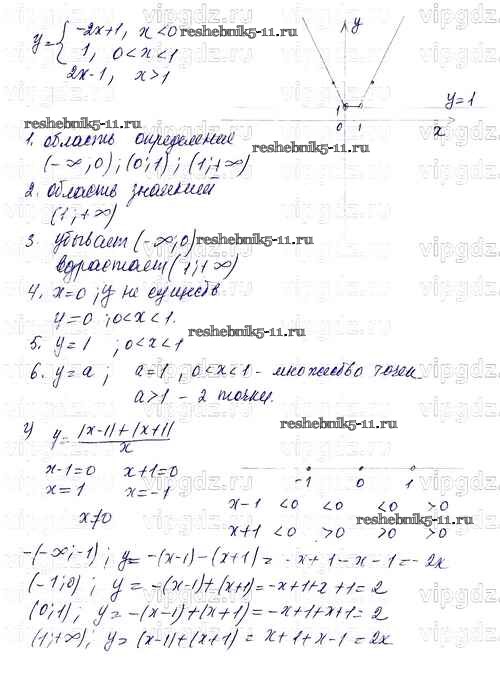 y = { -2x+1, x<0
1, 0<x<1
2x-1, x>1
y
1
0 1
y=1
x
1. область определения
(-∞,0); (0;1); (1;+∞)
2. область значений
(1;+∞)
3. убывает (-∞;0)
возрастает (1;+∞)
4. x=0; y не существ
y=0; 0<x<1.
5. y=1; 0<x<1
6. y=a; a=1, 0<x<1 - множество точек
a>1 - 2 точки.
y = |x-1|+|x+1| / x
x-1=0 x+1=0
x=1 x=-1
x≠0
-1 0 1
x-1 <0 <0 <0 >0
x+1 <0 >0 >0 >0
-(-∞;-1); y = -(x-1)-(x+1) = -x+1-x-1 = -2x
(-1;0); y = -(x-1)+(x+1) = -x+1+x+1 = 2
(0;1); y = -(x-1)+(x+1) = -x+1+x+1 = 2
(1;+∞); y = (x-1)+(x+1) = x+1+x-1 = 2x
reshebnik5-11.ru
reshebnik5-11.ru
reshebnik5-11.ru
reshebnik5-11.ru
reshebnik5-11.ru
reshebnik5-11.ru
reshebnik5-11.ru
vipgdz.ru